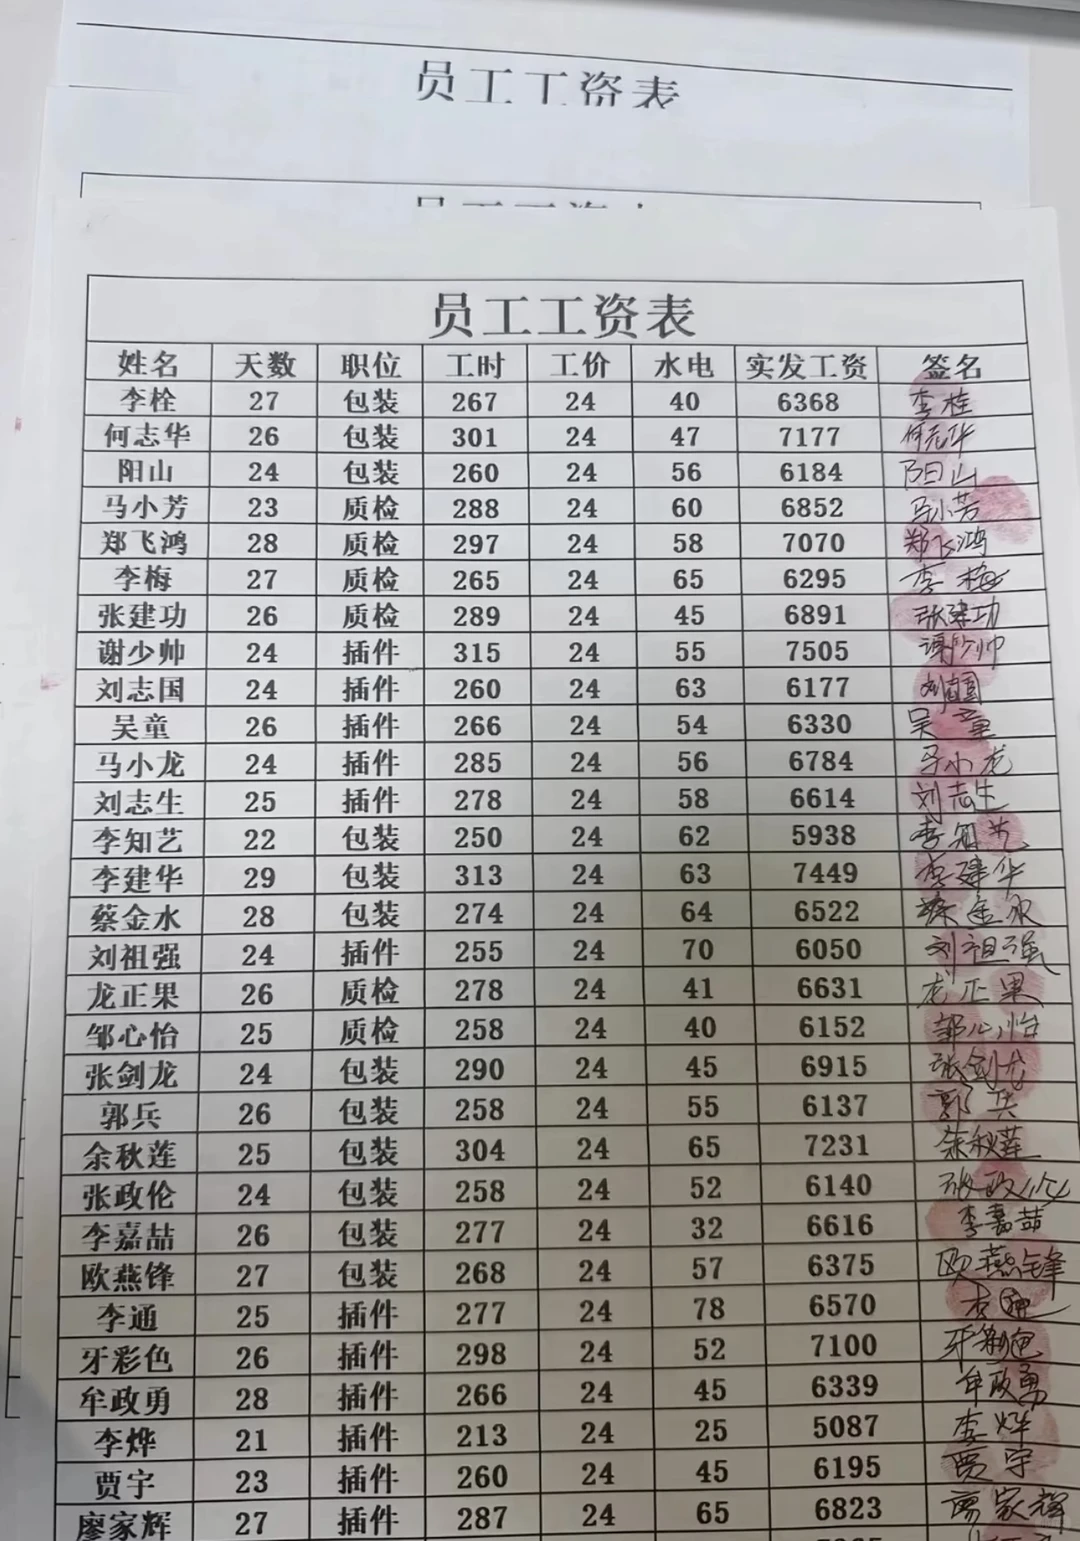 员工工资表
员工工资表
姓名 天数 职位 工时 工价 水电 实发工资 签名
李栓 27 包装 267 24 40 6368 李栓
何志华 26 包装 301 24 47 7177 何志华
阳山 24 包装 260 24 56 6184 阳山
马小芳 23 质检 288 24 60 6852 马小芳
郑飞鸿 28 质检 297 24 58 7070 郑飞鸿
李梅 27 质检 265 24 65 6295 李梅
张建功 26 质检 289 24 45 6891 张建功
谢少帅 24 插件 315 24 55 7505 谢少帅
刘志国 24 插件 260 24 63 6177 刘志国
吴童 26 插件 266 24 54 6330 吴童
马小龙 24 插件 285 24 56 6784 马小龙
刘志生 25 插件 278 24 58 6614 刘志生
李知艺 22 包装 250 24 62 5938 李知艺
李建华 29 包装 313 24 63 7449 李建华
蔡金水 28 包装 274 24 64 6522 蔡金水
刘祖强 24 插件 255 24 70 6050 刘祖强
龙正果 26 质检 278 24 41 6631 龙正果
邹心怡 25 质检 258 24 40 6152 邹心怡
张剑龙 24 包装 290 24 45 6915 张剑龙
郭兵 26 包装 258 24 55 6137 郭兵
余秋莲 25 包装 304 24 65 7231 余秋莲
张政伦 24 包装 258 24 52 6140 张政伦
李嘉喆 26 包装 277 24 32 6616 李嘉喆
欧燕锋 27 包装 268 24 57 6375 欧燕锋
李通 25 插件 277 24 78 6570 李通
牙彩色 26 插件 298 24 52 7100 牙彩色
牟政勇 28 插件 266 24 45 6339 牟政勇
李烨 21 插件 213 24 25 5087 李烨
贾宇 23 插件 260 24 45 6195 贾宇
廖家辉 27 插件 287 24 65 6823 廖家辉